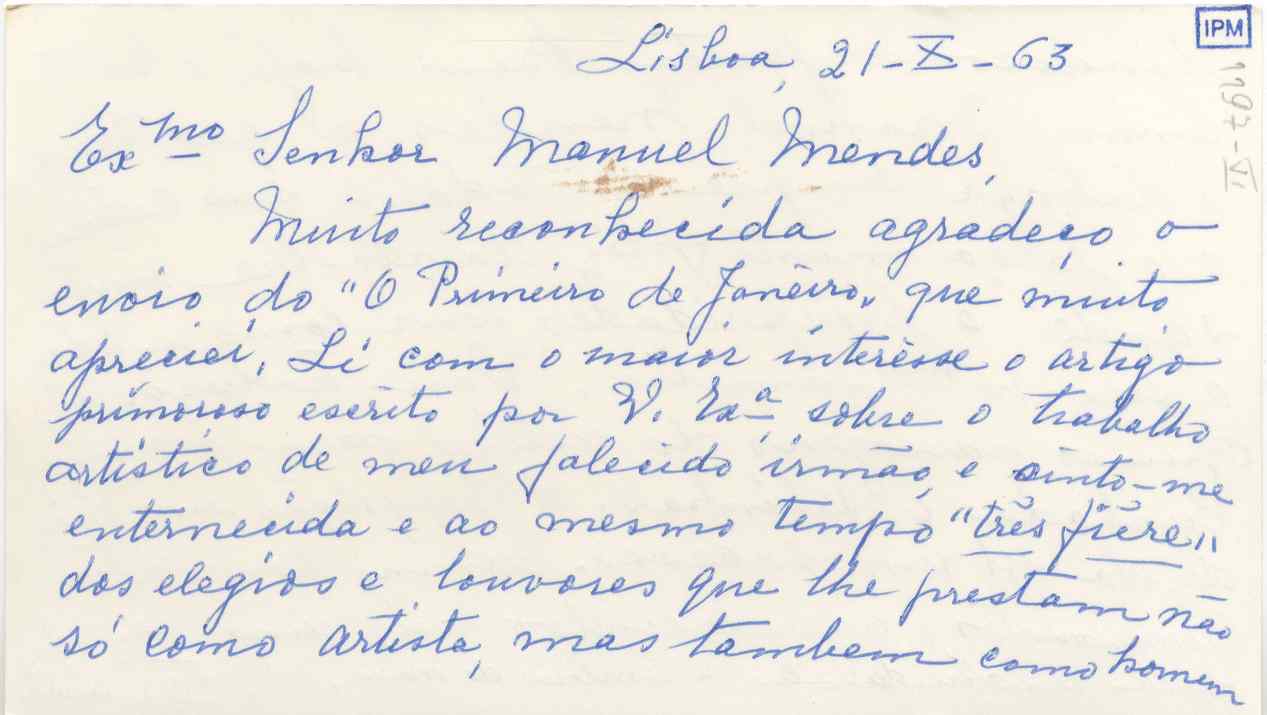 Lisboa, 21-X-63
IPM
1197-VI
Ex.mo Senhor Manuel Mendes,
Muito reconhecida agradeço o
envio do "O Primeiro de Janeiro", que muito
apreciei. Li com o maior interêsse o artigo
primoroso escrito por V. Exª, sobre o trabalho
artistico de meu falecido irmão, e sinto-me
enternecida e ao mesmo tempo "três fière"
dos elegios e louvores que lhe prestam não
só como artista, mas tambem como homem